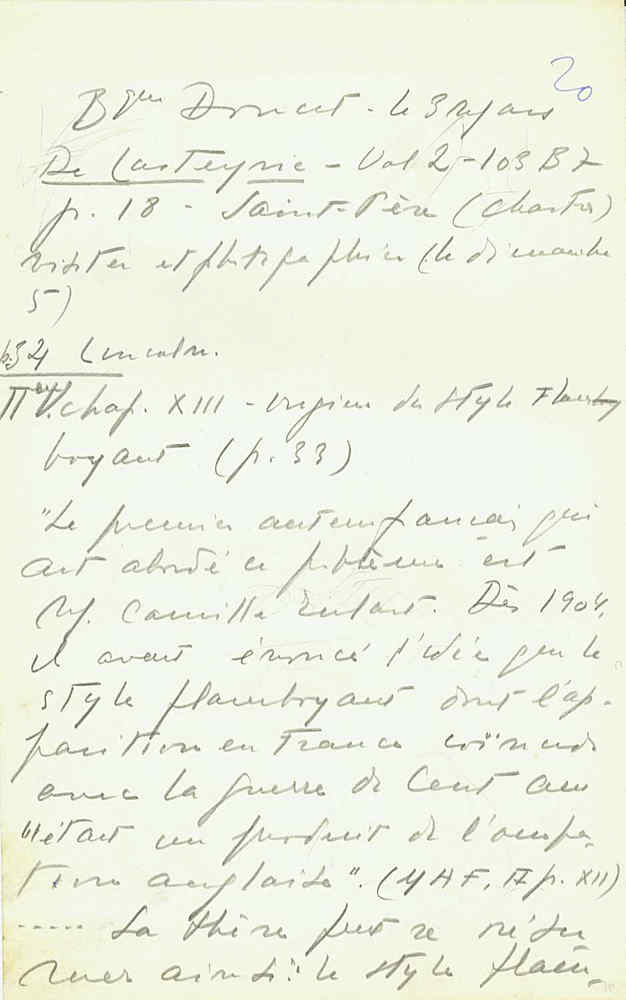 20
Bque Doucet - le 3 mars
De Lasteyrie - Vol 2 - 103 B7
p. 18 - Saint-Père (Chartres)
visiter et photographier (le dimanche
5)
p.34 Lincoln.
chap. XIII - origine du style Flam
boyant (p. 33)
"Le premier auteur français qui
ait abordé ce problème est
M. Camille Enlart. Dès 1904,
il avait énoncé l'idée que le
style flamboyant dont l'ap-
parition en France coïncide
avec la guerre de Cent ans
"était un produit de l'occupa-
tion anglaise". (p. XII)
..... La thèse peut se résu
mer ainsi: "le style flam-